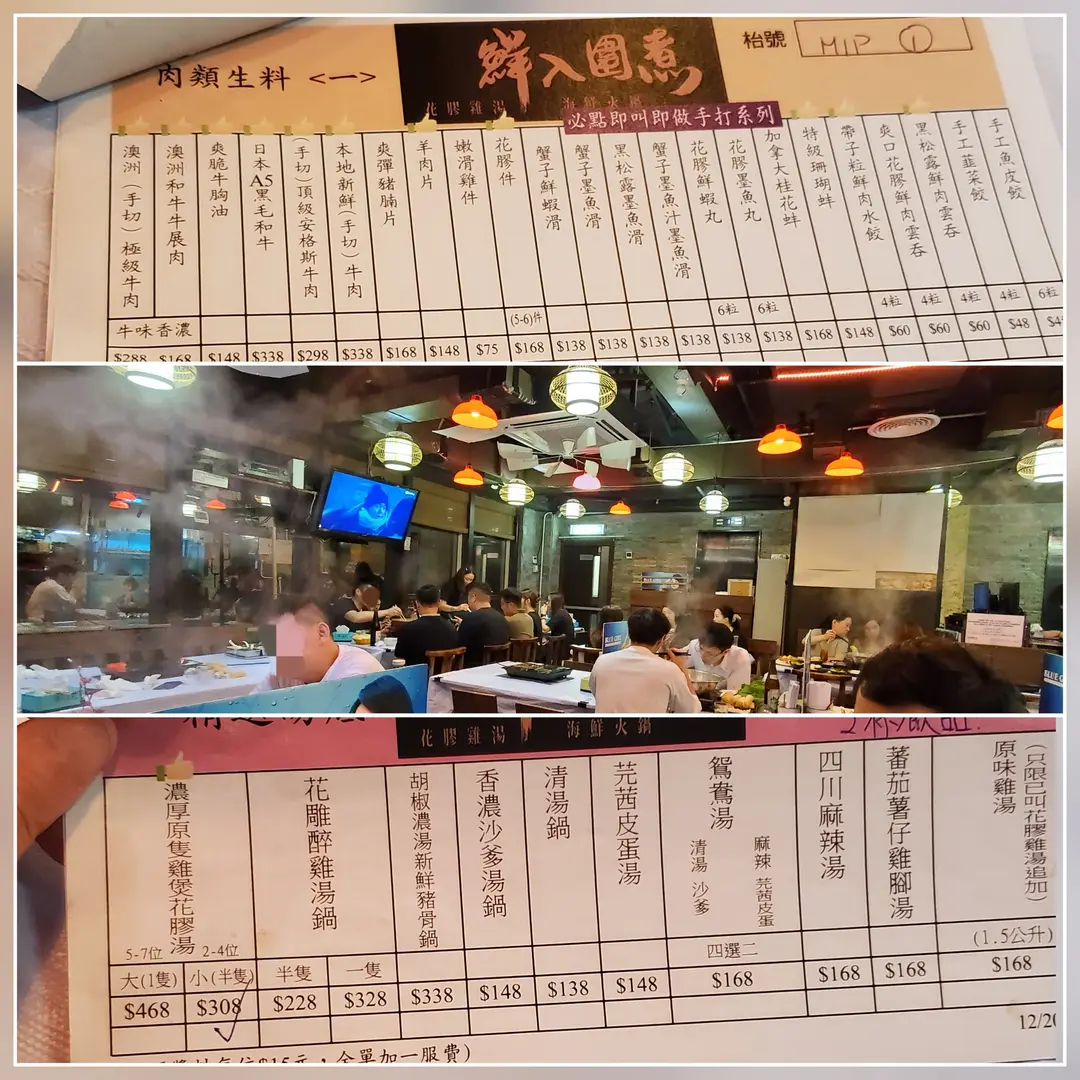 肉類生料 <一>
鮮入圍煮
花膠雞湯 海鮮火鍋
枱號 M1P ①
必點即叫即做手打系列
澳洲（手切）極級牛肉
澳洲和牛牛展肉
爽脆牛胸油
日本A5黑毛和牛
（手切）頂級安格斯牛肉
本地新鮮（手切）牛肉
爽彈豬腩片
羊肉片
嫩滑雞件
花膠件
蟹子鮮蝦滑
蟹子墨魚滑
黑松露墨魚滑
蟹子墨魚汁墨魚滑
花膠鮮蝦丸
花膠墨魚丸
加拿大桂花蚌
特級珊瑚蚌
帶子粒鮮肉水餃
爽口花膠鮮肉雲吞
黑松露鮮肉雲吞
手工韮菜餃
手工魚皮餃
牛味香濃
(5-6)件 6粒 6粒 4粒 4粒 4粒 4粒 6粒
$288 $168 $148 $338 $298 $338 $168 $148 $75 $168 $138 $138 $138 $138 $138 $138 $138 $168 $148 $60 $60 $60 $48
BLUE GIRL
花膠雞湯 海鮮火鍋
濃厚原隻雞煲花膠湯
花雕醉雞湯鍋
胡椒濃湯新鮮豬骨鍋
香濃沙爹湯鍋
清湯鍋
芫茜皮蛋湯
鴛鴦湯
麻辣 芫茜皮蛋
清湯 沙爹
四川麻辣湯
蕃茄薯仔雞腳湯
（只限已叫花膠雞湯追加）
原味雞湯
5-7位 2-4位
四選二
(1.5公升)
大(1隻) 小(半隻) 半隻 一隻
$468 $308 $228 $328 $338 $148 $138 $148 $168 $168 $168 $168
12/20
$15元，全單加一服費）